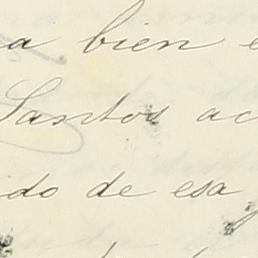 a bien e
Santos ac
ido de esa